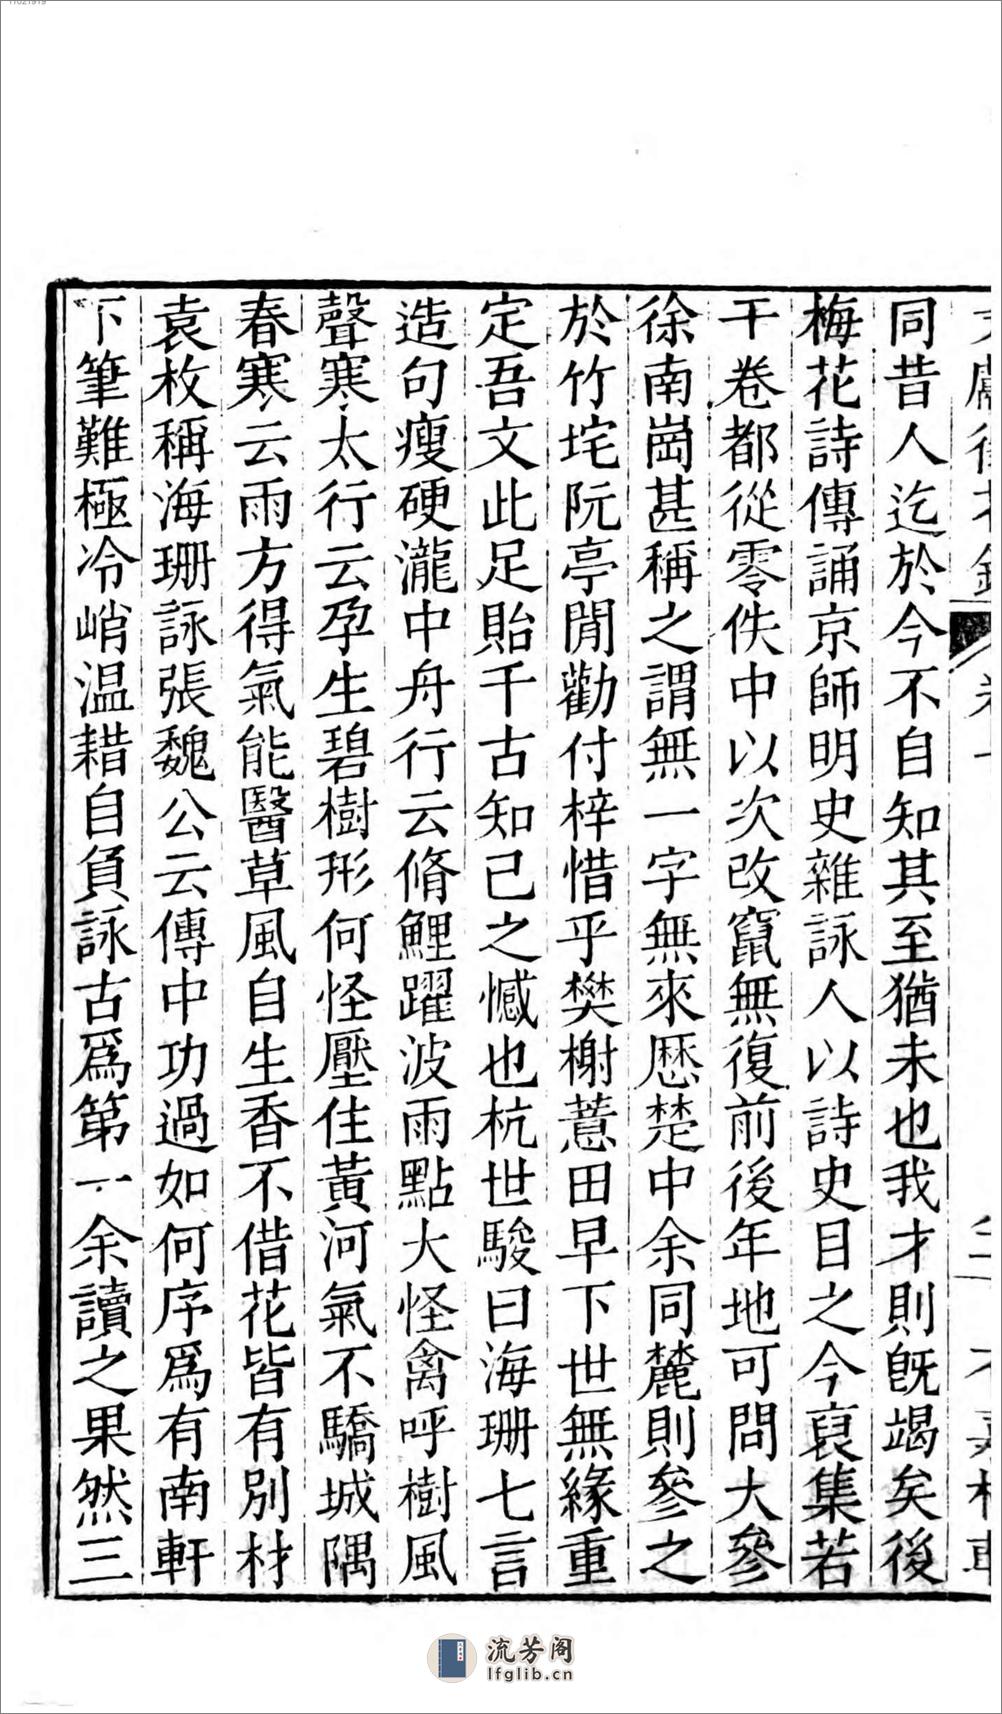 同昔人迄於今不自知其至猶未也我才則旣竭矣後
梅花詩傳誦京師明史雜詠人以詩史目之今裒集若
干卷都從零佚中以次改竄無復前後年地可問大參
徐南崗甚稱之謂無一字無來歷楚中余同麓則參之
於竹垞阮亭閒勸付梓惜乎樊榭薏田早下世無緣重
定吾文此足貽千古知己之憾也杭世駿曰海珊七言
造句瘦硬瀧中舟行云脩鯉躍波雨點大怪禽呼樹風
聲寒太行云孕生碧樹形何怪壓住黃河氣不驕城隅
春寒云雨方得氣能醫草風自生香不借花皆有別材
袁枚稱海珊詠張魏公云傳中功過如何序爲有南軒
下筆難極冷峭溫耤自負詠古爲第一余讀之果然三
流芳阁
lfglib.cn